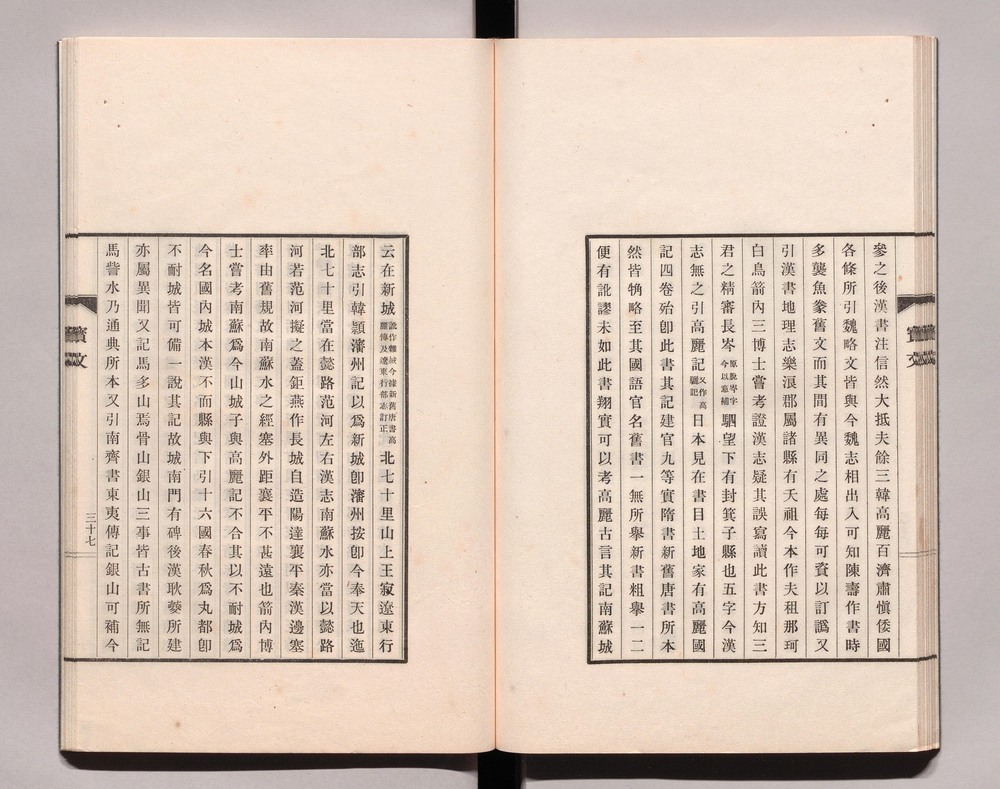 參之後漢書注信然大抵夫餘三韓高麗百濟肅愼倭國
各條所引魏略文皆與今魏志相出入可知陳壽作書時
多襲魚豢舊文而其間有異同之處每每可資以訂譌又
引漢書地理志樂浪郡屬諸縣有天祖今本作夫租那珂
白鳥箭內三博士嘗考證漢志疑其誤寫讀此書方知三
君之精審長岑原脫岑字今以意補駟望下有封箕子縣也五字今漢
志無之引高麗記又作高驪記日本見在書目土地家有高麗國
記四卷殆卽此書其記建官九等實隋書新舊唐書所本
然皆觕略至其國語官名舊書一無所舉新書粗舉一二
便有訛謬未如此書翔實可以考高麗古言其記南蘇城
云在新城訛作雜城今據新舊唐書高麗傳及遼東行部志訂正北七十里山上王寂遼東行
部志引韓潁瀋州記以爲新城卽瀋州按卽今奉天也迤
北七十里當在懿路范河左右漢志南蘇水亦當以懿路
河若范河擬之蓋鉅燕作長城自造陽達襄平秦漢邊塞
率由舊規故南蘇水之經塞外距襄平不甚遠也箭內博
士嘗考南蘇爲今山城子與高麗記不合其以不耐城爲
今名國內城本漢不而縣與下引十六國春秋爲丸都卽
不耐城皆可備一說其記故城南門有碑後漢耿夔所建
亦屬異聞又記馬多山焉骨山銀山三事皆古書所無記
馬訾水乃通典所本又引南齊書東夷傳記銀山可補今
三十七